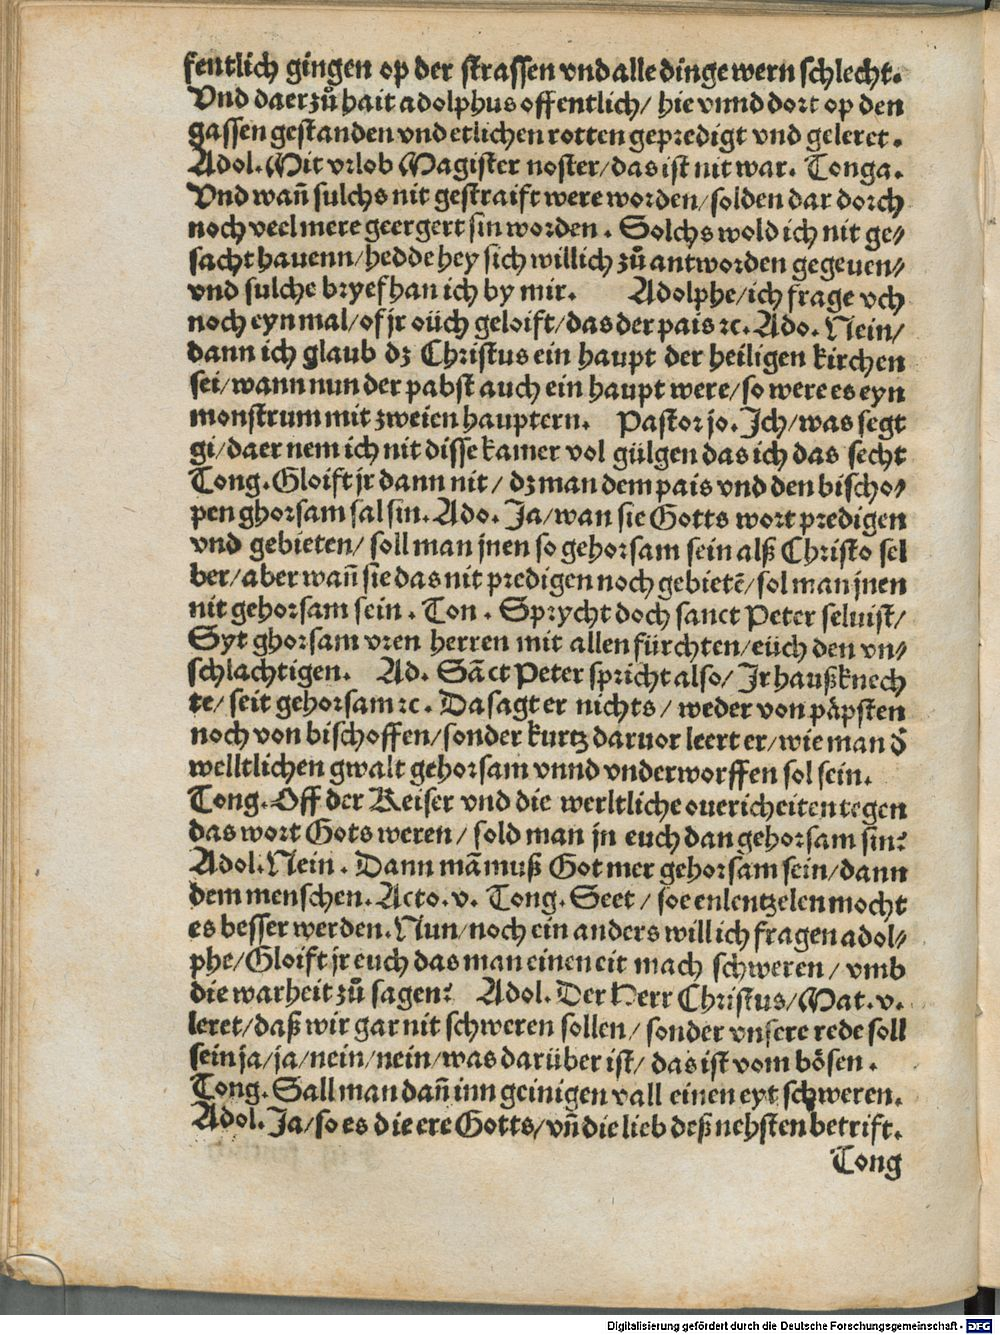 fentlich gingen op der strassen vnd alle dinge wern schlecht.
Vnd daerzuͦ hait adolphus offentlich/ hie vnnd dort op den
gassen gestanden vnd etlichen rotten gepredigt vnd geleret.
Adol. Mit vrlob Magister noster/das ist nit war. Tonga.
Vnd wan̄ sulchs nit gestraift were worden/solden dar dorch
noch veel mere geergert sin worden. Solchs wold ich nit ge⸗
sacht hauenn/hedde hey sich willich zuͦ antworden gegeuen⸗
vnd sulche bryef han ich by mir. Adolphe/ich frage vch
noch eyn mal/of jr oüch geloift/das der pais ꝛc. Ado. Nein/
dann ich glaub dz Christus ein haupt der heiligen kirchen
sei/wann nun der pabst auch ein haupt were/so were es eyn
monstrum mit zweien hauptern. Pastor jo. Ich/was segt
gi/daer nem ich nit disse kamer vol gülgen das ich das secht
Tong. Gloift jr dann nit/ dz man dem pais vnd den bischo⸗
pen ghorsam sal sin. Ado. Ja/wan sie Gotts wort predigen
vnd gebieten/ soll man jnen so gehorsam sein alß Christo sel
ber/aber wan̄ sie das nit predigen noch gebietē/sol man jnen
nit gehorsam sein. Ton. Sprycht doch sanct Peter seluist/
Syt ghorsam vren herren mit allen fürchten/eüch den vn⸗
schlachtigen. Ad. Sāct Peter spricht also/ Jr haußknech
te/ seit gehorsam ꝛc. Da sagt er nichts/ weder von päpsten
noch von bischoffen/sonder kurtz daruor leert er/wie man d̄
welltlichen gwalt gehorsam vnnd vnderworffen sol sein.
Tong. Off der Keiser vnd die werltliche ouericheiten tegen
das wort Gots weren/ sold man jn euch dan gehorsam sin?
Adol. Nein. Dann mā muß Got mer gehorsam sein/dann
dem menschen. Acto. v. Tong. Seet/ soe enlentzelen mocht
es besser werden. Nun/noch ein anders will ich fragen adol⸗
phe/Gloift jr euch das man einen eit mach schweren/ vmb
die warheit zuͦ sagen? Adol. Der Herr Christus/Mat. v.
leret/daß wir gar nit schweren sollen/ sonder vnsere rede soll
sein ja/ja/nein/nein/was darüber ist/ das ist vom bösen.
Tong. Sall man dan̄ inn geinigen vall einen eyt schweren.
Adol. Ja/so es die ere Gotts/vn̄ die lieb deß nehsten betrift.
Tong
Digitalisierung gefördert durch die Deutsche Forschungsgemeinschaft - DFG